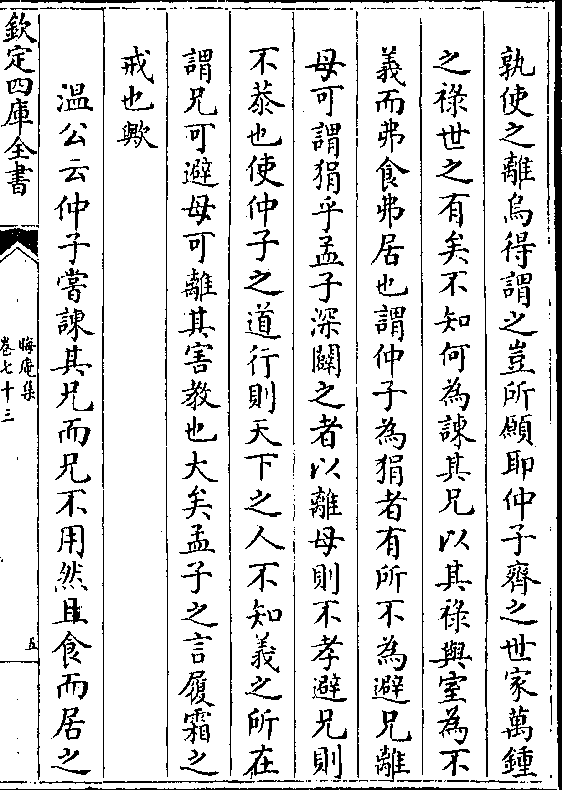 孰使之離烏得謂之豈所願耶仲子齊之世家萬鍾
之祿世之有矣不知何為諫其兄以其祿與室為不
義而弗食弗居也謂仲子為狷者有所不為避兄離
母可謂狷乎孟子深闢之者以離母則不孝避兄則
不恭也使仲子之道行則天下之人不知義之所在
謂兄可避母可離其害教也大矣孟子之言履霜之
戒也歟
溫公云仲子嘗諫其兄而兄不用然且食而居之
欽定四庫全書
晦庵集
卷七十三
五